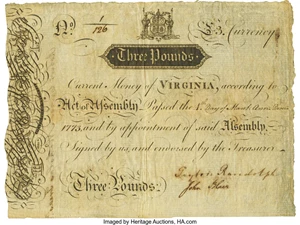 No 1/126 £3. Currency
Three Pounds.
Current Money of VIRGINIA, according to
Act of Assembly. Passed the
1775, and by appointment of said Assembly,
Signed by us, and endorsed by the Treasurer
Peyton Randolph
Three Pounds. John Blair
Imaged by Heritage Auctions, HA.com